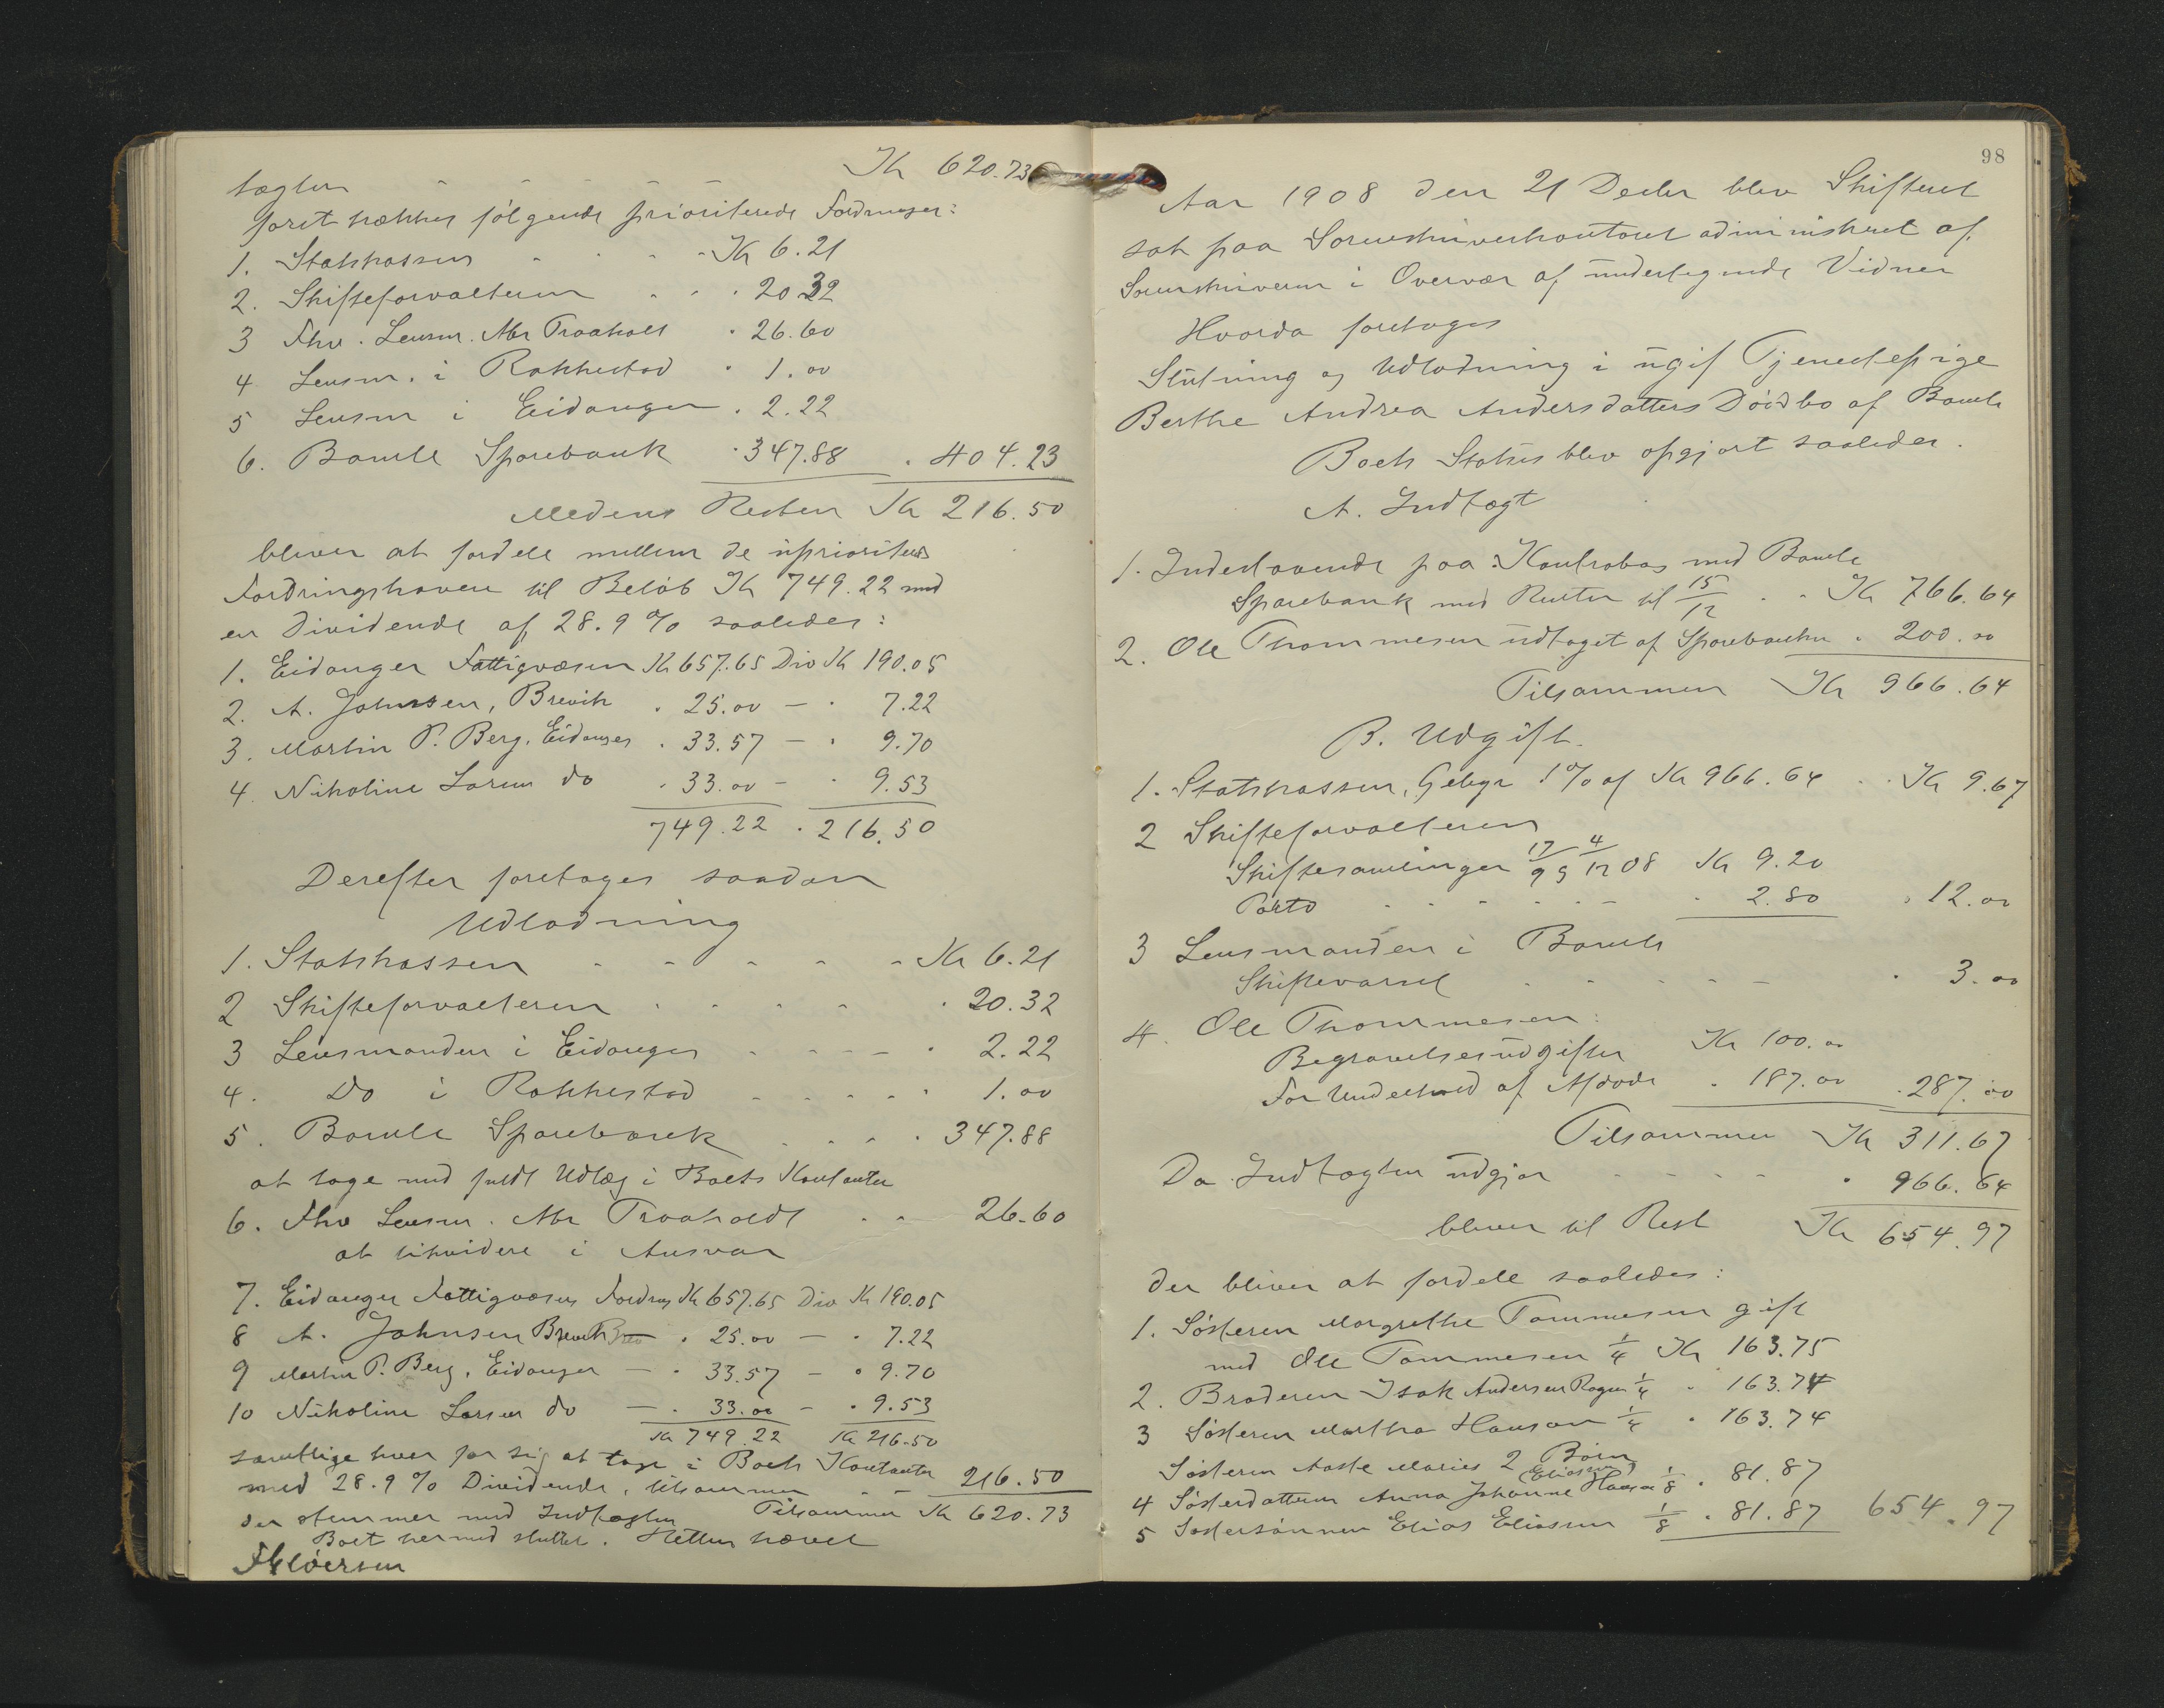 tægten - - - - - Kr 620.73
foret trækkes følgende prioriterede Fordringer:
1. Statskassen - - - Kr 6.21
2. Skifteforvalteren . . . 20.32
3 Fhv. Lensm. Abr Traaholt . 26.60
4 Lensm. i Rakkestad . 1.00
5 Lensm i Eidanger . 2.22
6. Bamle Sparebank . 347.88 . 404.23
Medens Resten Kr 216.50
bliver at fordele mellem de uprioriterede
Fordringshavere til Beløb Kr 749.22 med
en Dividende af 28.9 % saaledes:
1. Eidanger Fattigvæsen Kr 657.65 Div Kr 190.05
2. A. Johnsen, Brevik . 25.00 — . 7.22
3. Martin P. Berg, Eidanger . 33.57 — . 9.70
4. Nikoline Larsen do . 33.00 - . 9.53
749.22 . 216.50
Derefter foretages saadan
Udlodning
1. Statskassen - - - - - Kr 6.21
2 Skifteforvalteren . . . . . 20.32
3 Lensmanden i Eidanger - - - - . 2.22
4. Do i Rakkestad - - - - . 1.00
5. Bamle Sparebank . . . . 347.88
at tage med fuldt Udlæg i Boets Kontanter
6. Fhv Lensm. Abr Traaholdt . - 26.60
at likvidere i Ansvar
7. Eidanger Fattigvæsen Fordring Kr 657.65 Div Kr 190.05
8 A. Johnsen Brevik . 25.00 — . 7.22
9 Martin P. Berg, Eidanger — . 33.57 — . 9.70
10 Nikoline Larsen do — . 33.00 - . 9.53
Kr 749.22 Kr 216.50
samtlige hver for sig at tage i Boets Kontanter
med 28.9 % Dividende, tilsammen - - 216.50
der stemmer med Indtægten Tilsammen Kr 620.73
Boet hermed sluttet. Retten hævet
98
Aar 1908 den 21 Decbr blev Skifteret
sat paa Sorenskriverkontoret administreret af
Sorenskriveren i Overvær af undertegnede Vidner
Hvorda foretages
Slutning og Udlodning i ugif Tjenestepige
Berthe Andrea Andersdatters Dødsbo af Bamle
Boets Status blev opgjort saaledes.
A. Indtægt
1. Indestaaende paa Kontrabog med Bamle
Sparebank med Renter til 15/12 . . Kr 766.64
2. Ole Thommesen udtaget af Sparebanken . 200.00
Tilsammen Kr 966.64
B. Udgift.
1. Statskassen, Gebyr 1% af Kr 966.64 . . Kr 9.67
2 Skifteforvalteren
Skiftesamlinger 17/9 9 4/12 08 Kr 9.20
Porto - - - - - . 2.80 . 12.00
3 Lensmanden i Bamle
Skiftevarsel . - - - - . 3.00
4. Ole Thommesen:
Begravelsesudgifter Kr 100.00
For Underhold af Afdøde . 187.00 . 287.00
Tilsammen Kr 311.67
Da Indtægten udgjør - - - - . 966.64
bliver til Rest Kr 654.97
der bliver at fordele saaledes:
1. Søsteren Margrethe Tommesen gift
med Ole Tommesen 1/4 Kr 163.75
2. Broderen Isak Andersen 1/4 . 163.74
3 Søsteren Martha Hansen 1/4 . 163.74
Søsteren Aaste Maries 2 Børn
4 Søsterdatteren Anna Johanne (Eliassen) Hansen 1/8 . 81.87
5 Søstersønnen Elias Eliassen 1/8 . 81.87 654.97